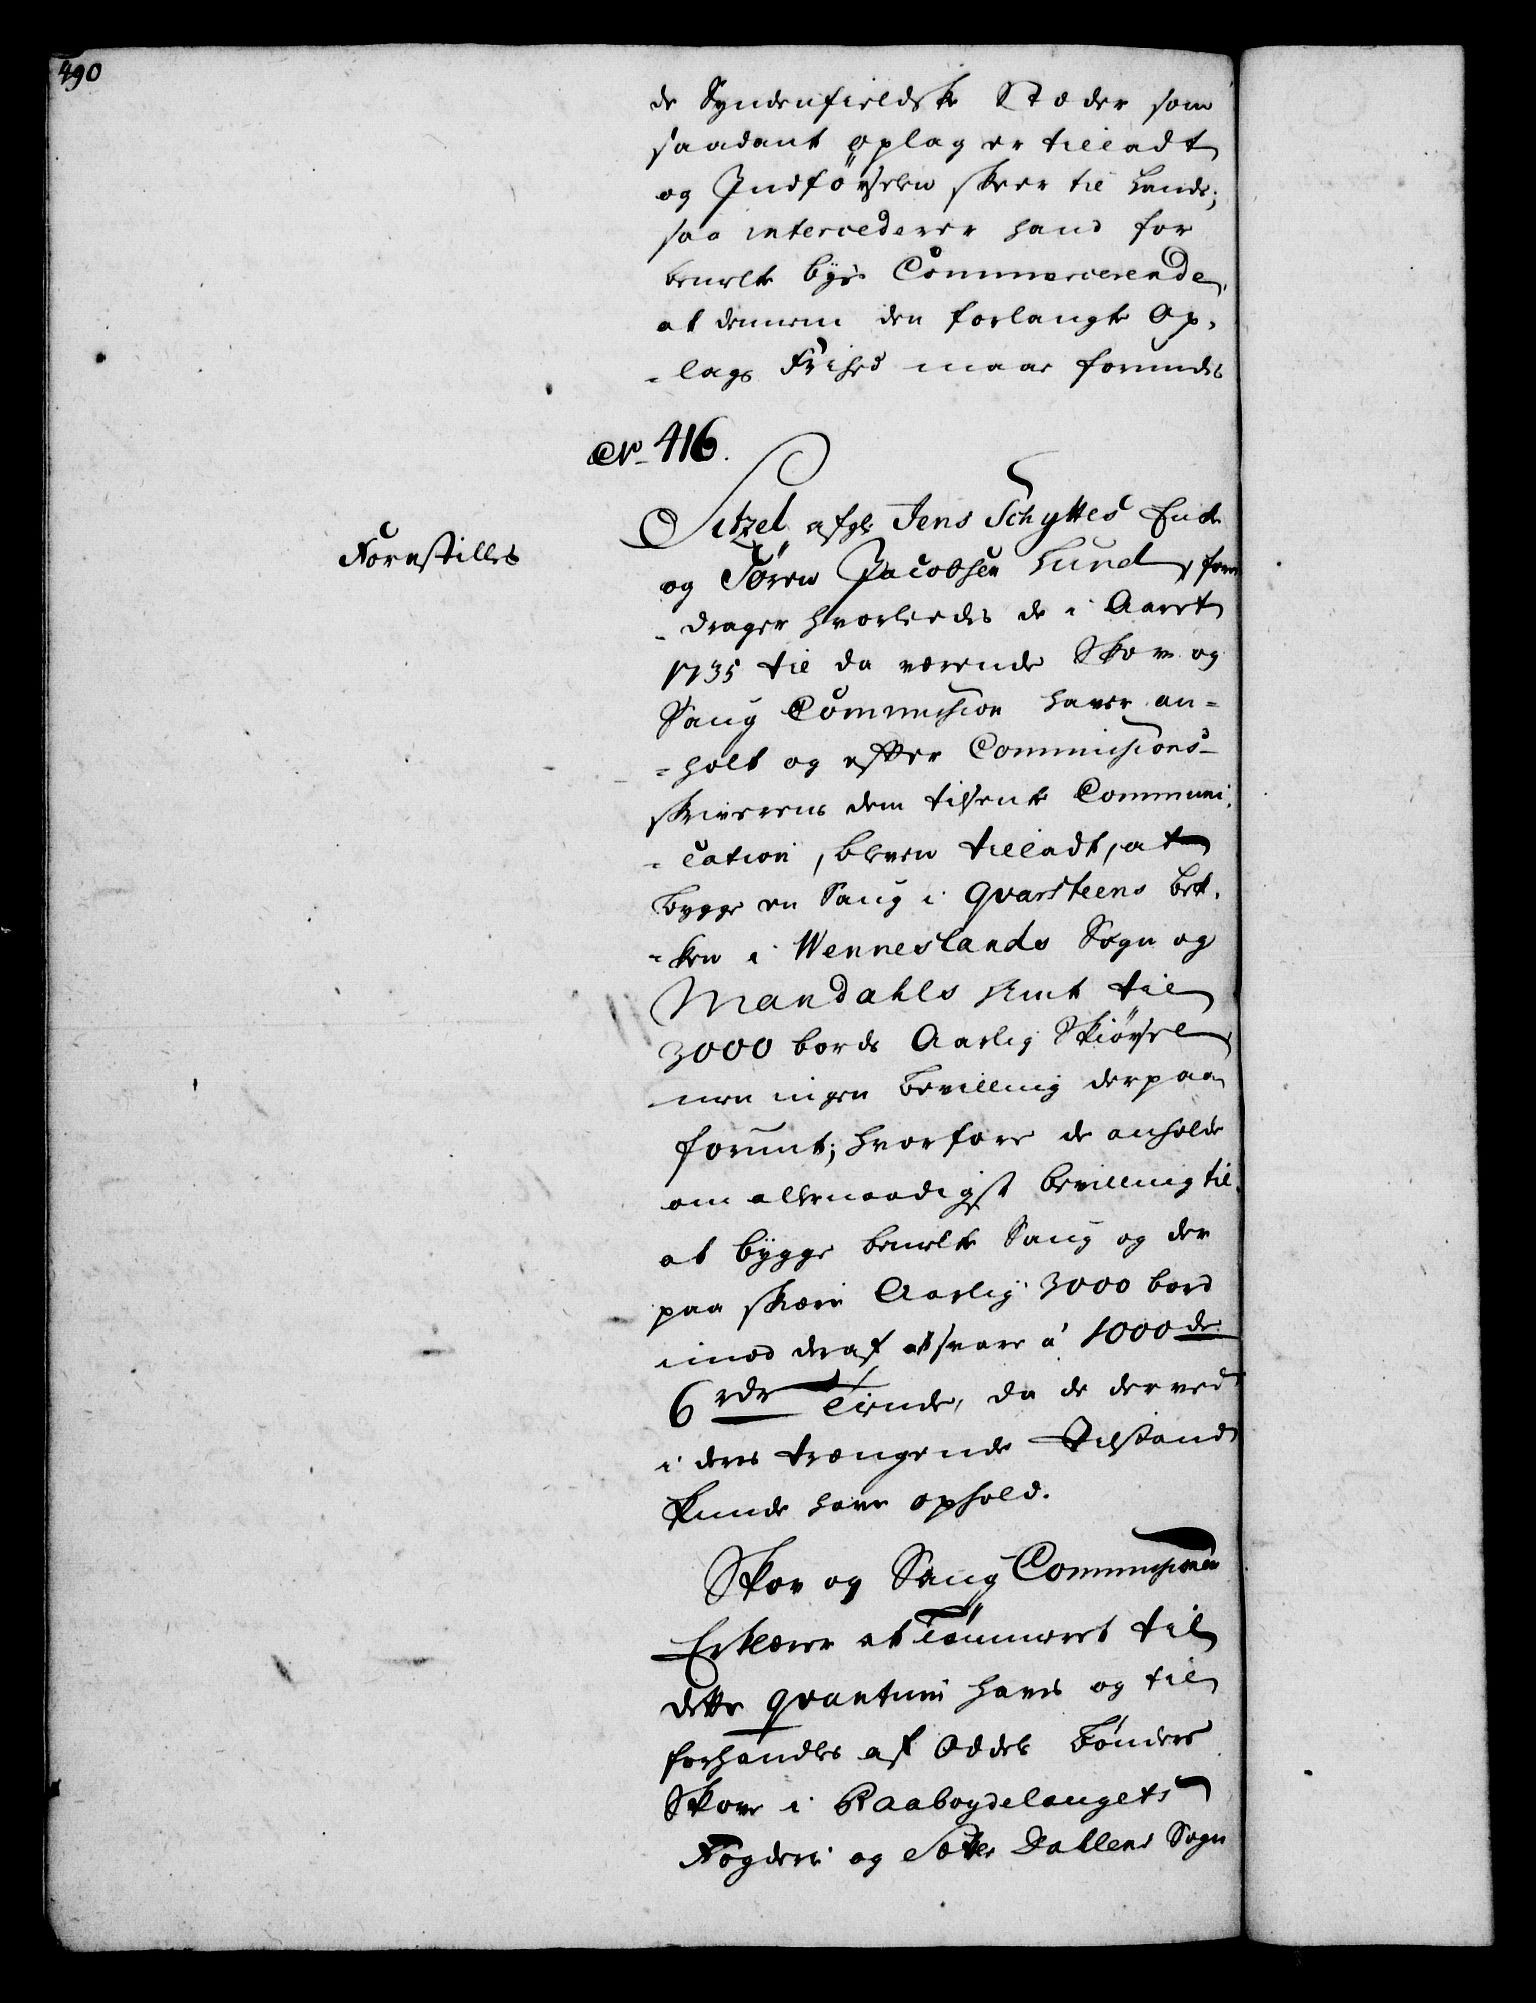 490
de Syndenfieldske Stæder som
saadant oplag er tilladt
og Indførselen skeer til Lands;
saa intercederer hand for
bemelte byes Commercerende,
at dennem den forlangte Op-
-lags Frihed maae forundes
No 416.
Sitzel afg: Jens Schyttes Enke
Forestilles
og Søren Jacobsen Lund, fore
-drager hvorledes de i Aaret
1735 til da værende Skov og
Saug Commission haver an-
-holt og efter Commissions-
skriverens dem tilsente Communi-
-cation, bleven tilladt, at
bygge en Saug i Qvarsteens bek-
-ken i Wenneslands Sogn og
Mandahls Amt til
3000 bords Aarlig Skiørsel,
men ingen bevilling derpaa
forunt; hvorfore de anholde
om allernaadigst bevilling til
at bygge bemelte Saug og der
paa skære Aarlig 3000 bord
imod deraf at svare á 1000de
6 rdr Tiende, da de derved
i deres trængende Tilstand
kunde have ophold.
Skov og Saug Commissionen
Erklærer at Tømmeret til
dette qvantum haves og til
forhandles af Oddels bønders
Skove i Raabygdelaugets
Fogderi og Sætter Dallens Sogn